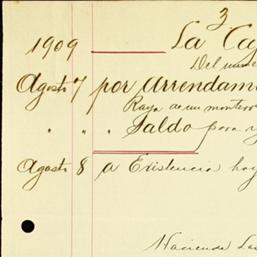 3
1909 La Ca
Del
Agosto 7 por Arrendam
Raya de un montero
" " Saldo para
Agosto 8 a Existencia hoy
Hacienda